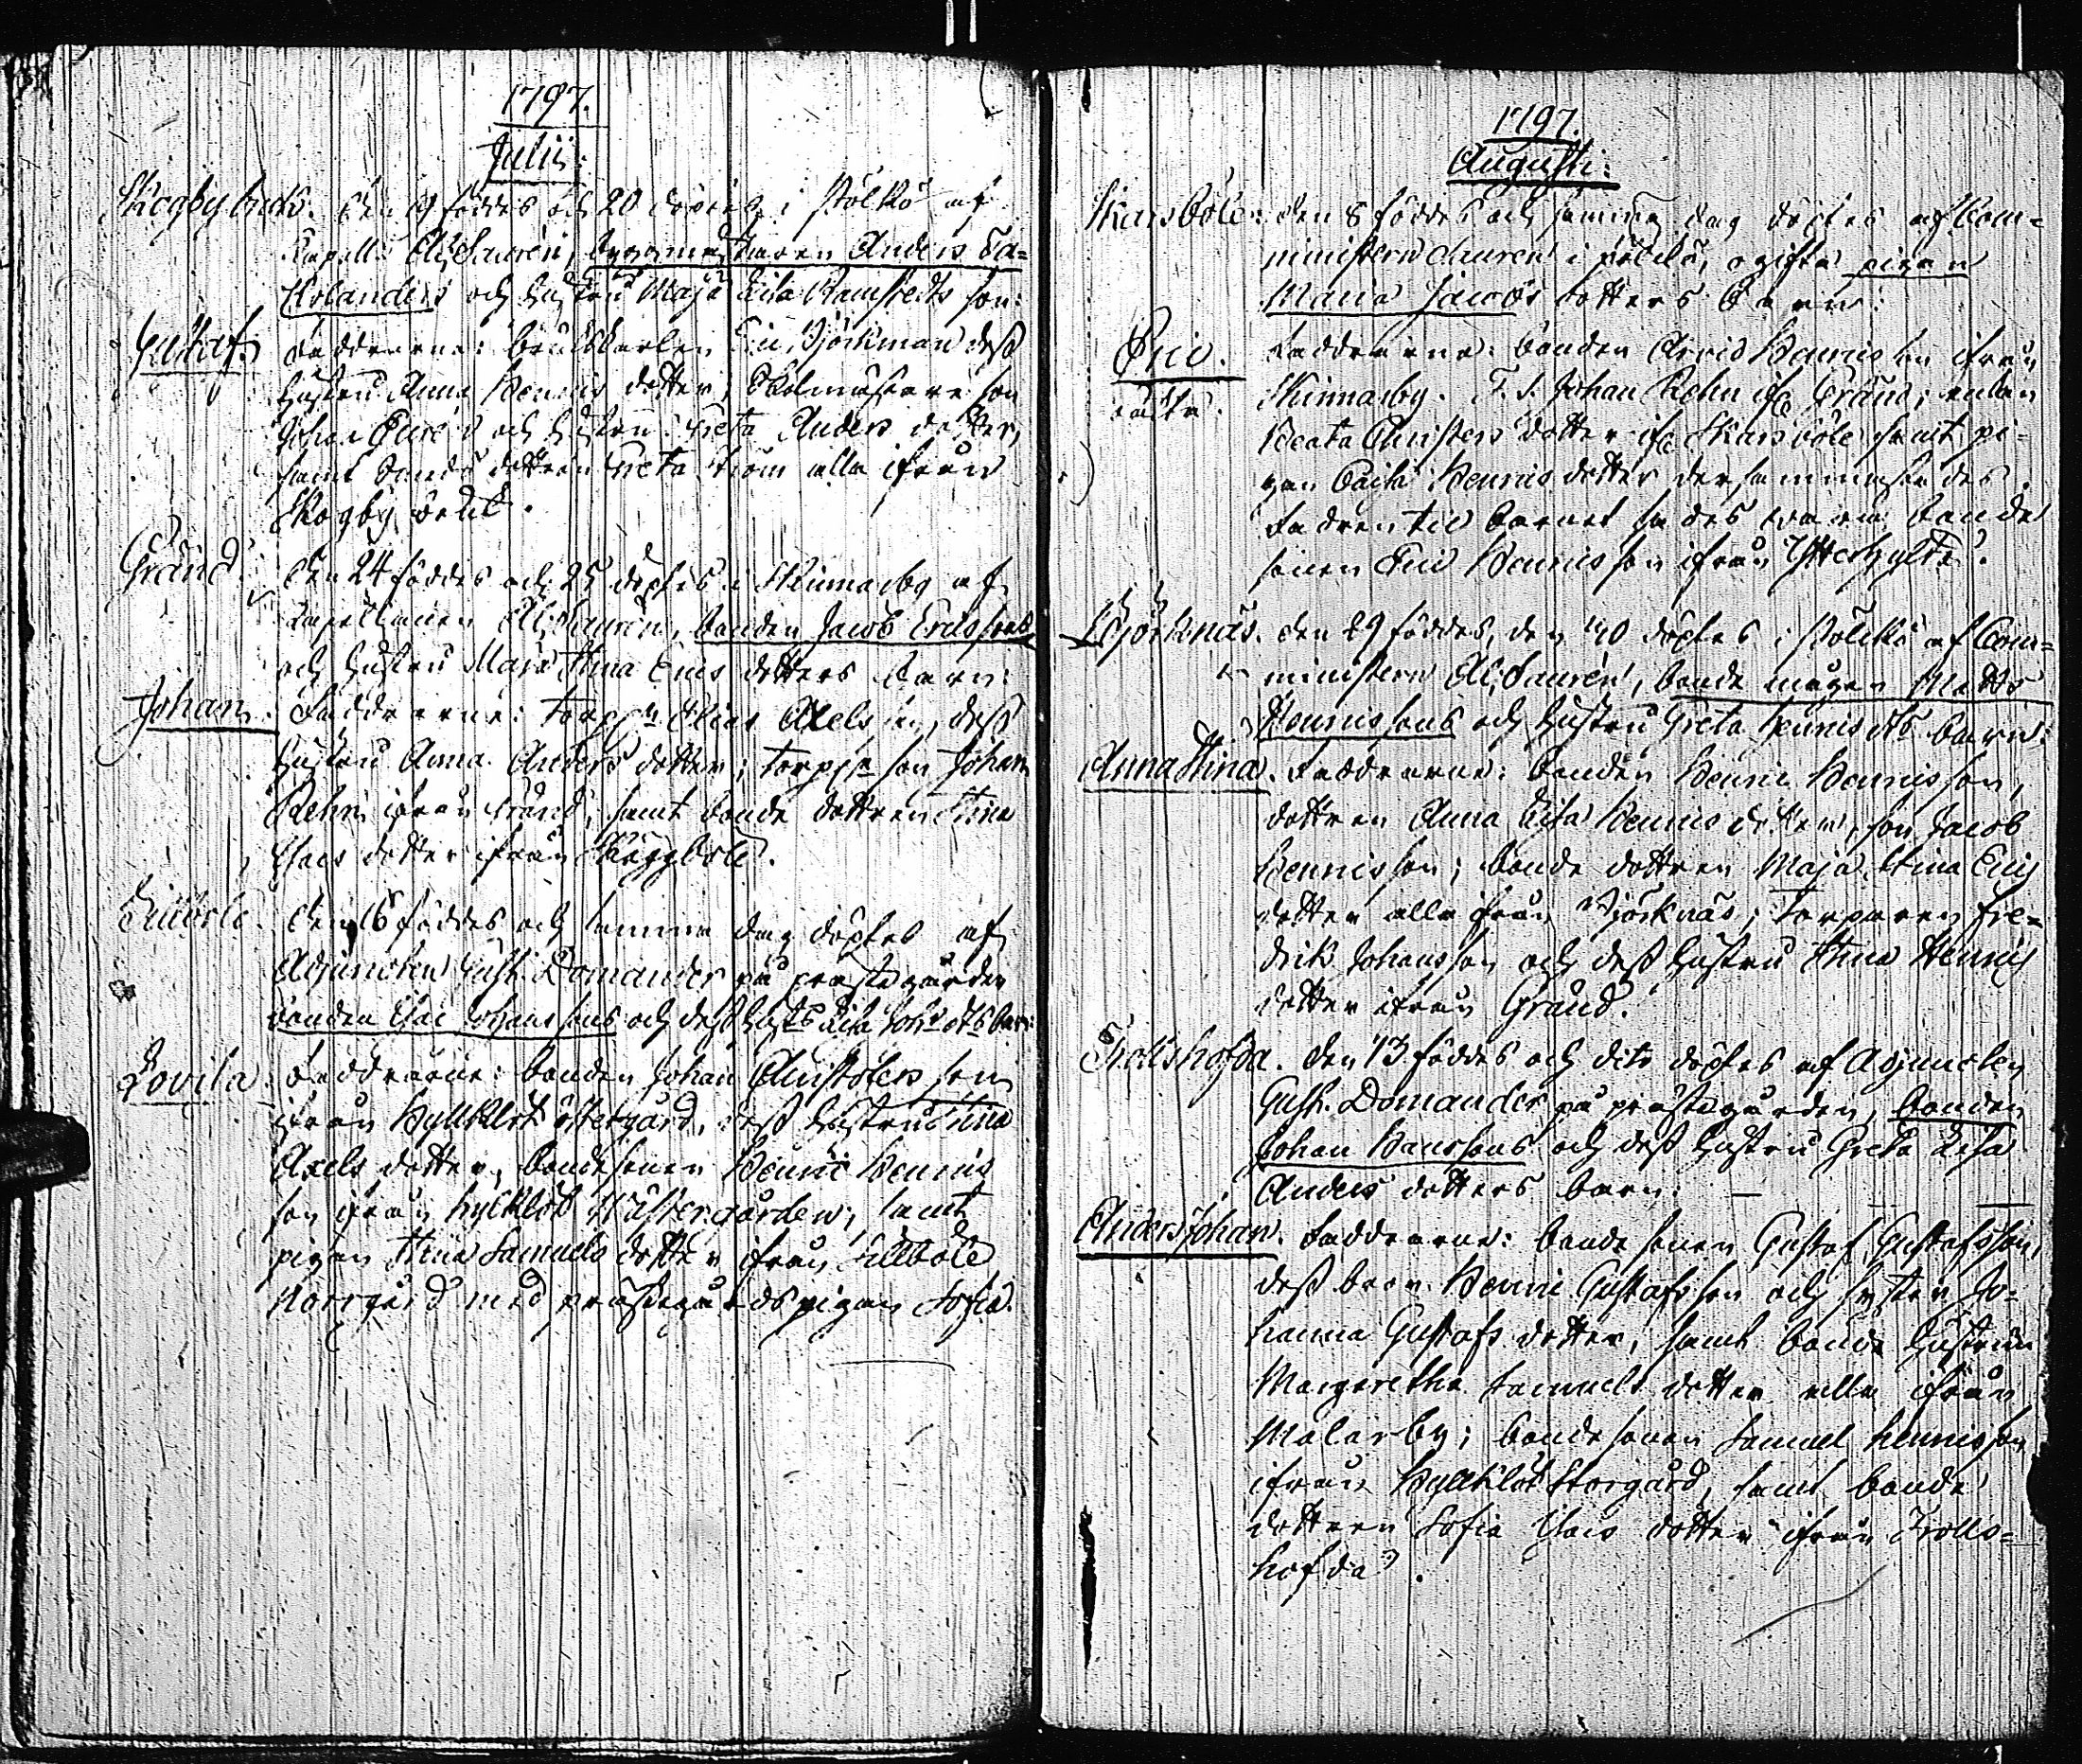 1797.
Julii:
Skogby bruk. den 19 föddes och 20 döptes i Pölkö af
Capell. Al: Laurén, byggmästaren Anders Ta=
kolanders och hustru Maja Lisa Ramstedts son:
Gustaf. Faddrarne: bruks karlen Eric Björkman dess
hustru Anna Henrics dotter; Skolmästare son
Johan och hustru Greta Anders dotter,
samt dottren Greta alla ifrån
Skogby bruk.
Gränd. den 24 föddes och 25 döptes i Skinnarby af
Capellanen Al: Laurén, bonden Jacob Ericssons
och hustru Maria Stina Erics dotters barn:
Johan. Faddrarne: torp:n Elias Axelsson, dess
hustru Anna Anders dotter; torp:n son Johan
Rehn ifrån Gränd, samt bonde dottren Stina
Isacs dotter ifrån Skäggböle.
Lillböle. den 16 föddes och samma dag döptes af
Adjuncten Gust. Domander på prästegården
bonden Isac Johanssons och dess hust: Lisa Joh: dts barn:
Lovisa. Faddrarne: bonden Johan Christofersson
ifrån Hyllklöt östergård, dess hustru Stina
Axels dotter, bondesonen Henric Henrics
son ifrån hyllklöt Wästergården, samt
pigan Stina Samuels dotter ifrån Lillböle
Norrgård med prästegårds pigan Sofia.
1797.
Augusti:
Skarsböle. den 8 föddes och samma dag döptes af Com=
ministern Laurén i Pölkö, ogifta pigan
Maria Jacobs dotters barn:
Eric. Faddrarne: bonden Arvid Henricsson ifrån
oäkta. Skinnarby. T. S. Johan Rehn ifr. Gränd; enkan
Beata Christers dotter ifr. Skarsböle samt pi=
gan Caisa Henrics dotter dersammastädes.
Fadren til barnet sades wara bonde
sonen Eric Henricsson ifrån Ytterhylta.
Björknäs. den 29 föddes, den 30 döptes i Pölkö af Com=
ministern Al: Laurén, bonde mågen Matts
Henricssons och hustru Greta Henrics dts barn:
Anna Stina. Faddrarne: bonden Henric Henricsson,
dottren Anna Lisa Henrics dotter, son Jacob
Henricsson; bonde dottren Maja Stina Erics
dotter alla ifrån Björknäs; Torparen Fre=
drik Johansson och dess hustru Stina Henrics
dotter ifrån Gränd.
Trollshofda. den 13 föddes och dito döptes af Adjuncten
Gust. Domander på prästegården, bonden
Johan Hanssons och dess hustru Greta Lisa
Anders dotters barn:
Anders Johan. Faddrarne: bonde sonen Gustaf Gustafsson,
dess bror Henric Gustafsson och syster Jo=
hanna Gustafs dotter, samt bonde hustrun
Margaretha Samuels dotter alla ifrån
Malarby; bondesonen Samuel Henricsson
ifrån Hyllklöt Storgård, samt bonde
dottren Sofia Isacs dotter ifrån Trolls=
hofda.